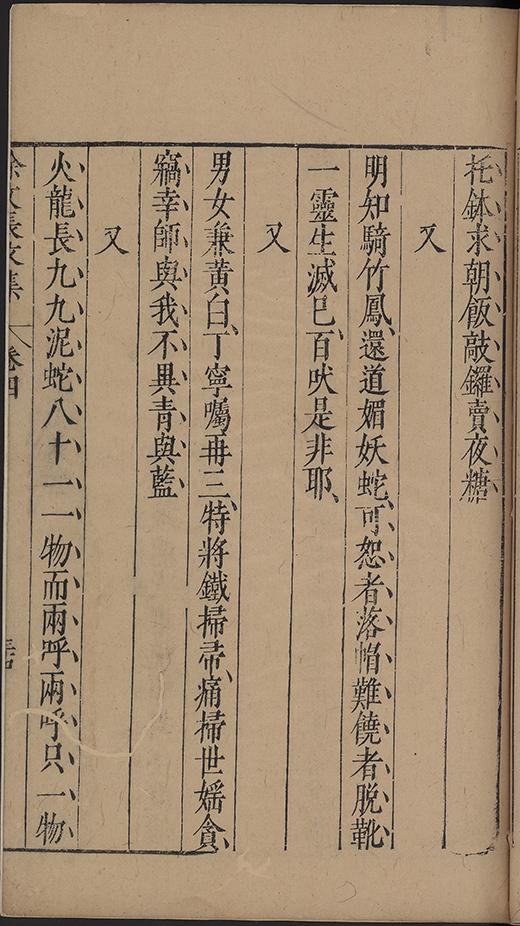 托鉢求朝飯敲鑼賣夜糖
又
明知騎竹鳳還道媚妖蛇可恕者落帽難饒者脫靴
一靈生滅已百吠是非耶
又
男女兼黃白丁寧囑再三特將鐵掃帚痛掃世婬貪
竊幸師與我不異青與藍
又
火龍長九九泥蛇八十一一物而兩呼兩呼只一物
徐文長文集 卷四